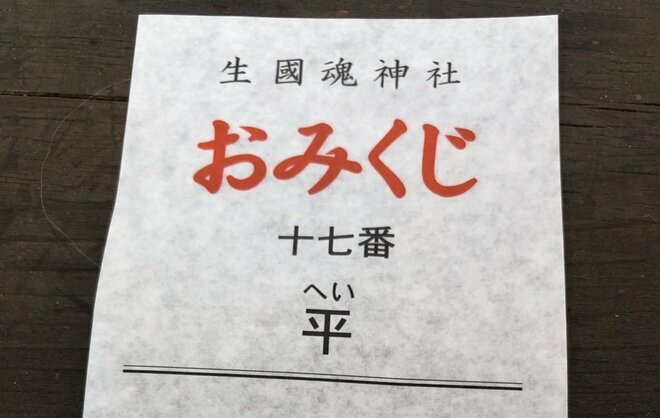 生國魂神社
おみくじ
十七番
へい
平